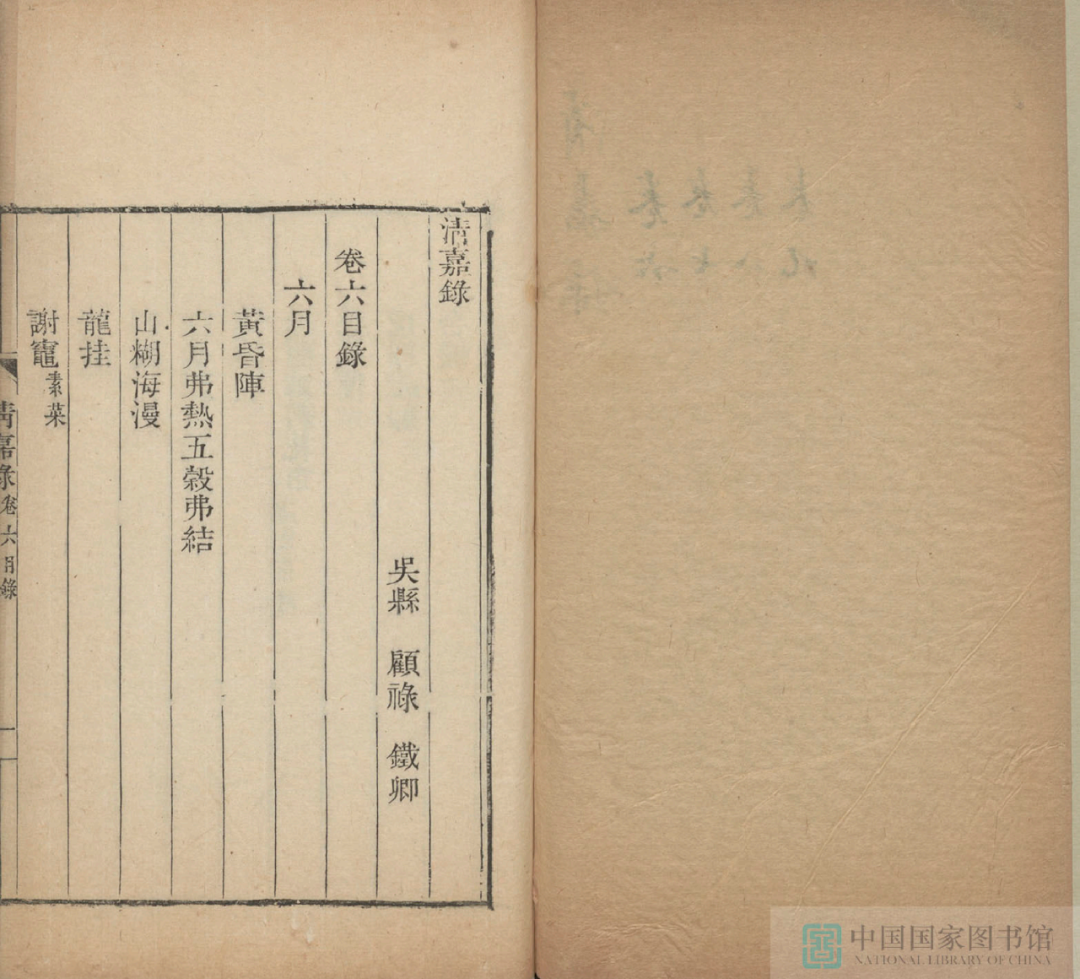 清嘉錄
吳縣　顧祿　鐵卿
卷六目錄
六月
黃昏陣
六月弗熱五穀弗結
山糊海漫
龍挂
謝竈素菜
清嘉錄卷六目錄
中国国家图书馆
NATIONAL LIBRARY OF CHINA